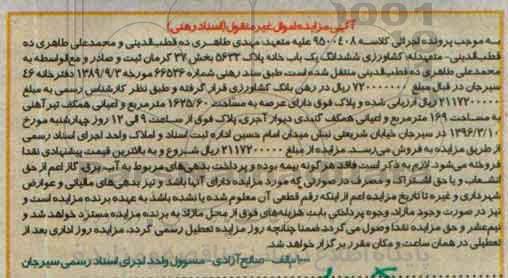 آگهی مزایده اموال غیر منقول (اسناد رهنی)
به موجب پرونده اجرائی کلاسه ۹۵۰۰۴۰۸ علیه متعهد: مهدی طاهری ده قطب‌الدینی و محمدعلی طاهری ده
قطب‌الدینی - متعهدله: کشاورزی ششدانگ یک باب خانه پلاک ۵۶۳۳ بخش ۳۷ کرمان ثبت و صادر و مع‌الواسطه به
محمدعلی طاهری ده قطب‌الدینی منتقل شده است. طبق سند رهنی شماره ۶۶۵۳۶ مورخه ۱۳۸۹/۹/۳ دفترخانه ۴۶
سیرجان در قبال مبلغ ۷۲۰۰۰۰۰۰۰ ریال در رهن بانک کشاورزی قرار گرفته و طبق نظر کارشناس رسمی به مبلغ
۲۱۱۷۲۰۰۰۰۰ ریال ارزیابی شده و پلاک فوق دارای عرصه به مساحت ۱۶۲۵/۶۰ مترمربع و اعیانی همکف تیرآهنی
به مساحت ۱۶۹ مترمربع و اعیانی همکف گنبدی دیوار آجری پلاک فوق از ساعت ۹ الی ۱۲ روز چهارشنبه مورخ
۱۳۹۶/۳/۱۰ در سیرجان خیابان شریعتی نبش میدان امام حسین اداره ثبت اسناد و املاک واحد اجرای اسناد رسمی
از طریق مزایده به فروش می‌رسد. مزایده از مبلغ ۲۱۱۷۲۰۰۰۰۰ ریال شروع و به بالاترین قیمت پیشنهادی نقدا
فروخته می‌شود. لازم به ذکر است فاقد هرگونه بیمه بوده و پرداخت بدهی‌های مربوط به آب، برق، گاز اعم از حق
انشعاب و یا حق اشتراک و مصرف در صورتی که مورد مزایده دارای آنها باشد و نیز بدهی‌های مالیاتی و عوارض
شهرداری و غیره تا تاریخ مزایده اعم از اینکه رقم قطعی آن معلوم شده یا نشده باشد به عهده برنده مزایده است و
نیز در صورت وجود مازاد، وجوه پرداختی بابت هزینه‌های فوق از محل مازاد به برنده مزایده مسترد خواهد شد و
نیم‌عشر و حق مزایده نقدا وصول می‌گردد. ضمنا چنانچه روز مزایده تعطیل رسمی گردد، مزایده روز اداری بعد از
تعطیلی در همان ساعت و مکان مقرر برگزار خواهد شد.
م‌الف - صانع آزادی - مسوول واحد اجرای اسناد رسمی سیرجان